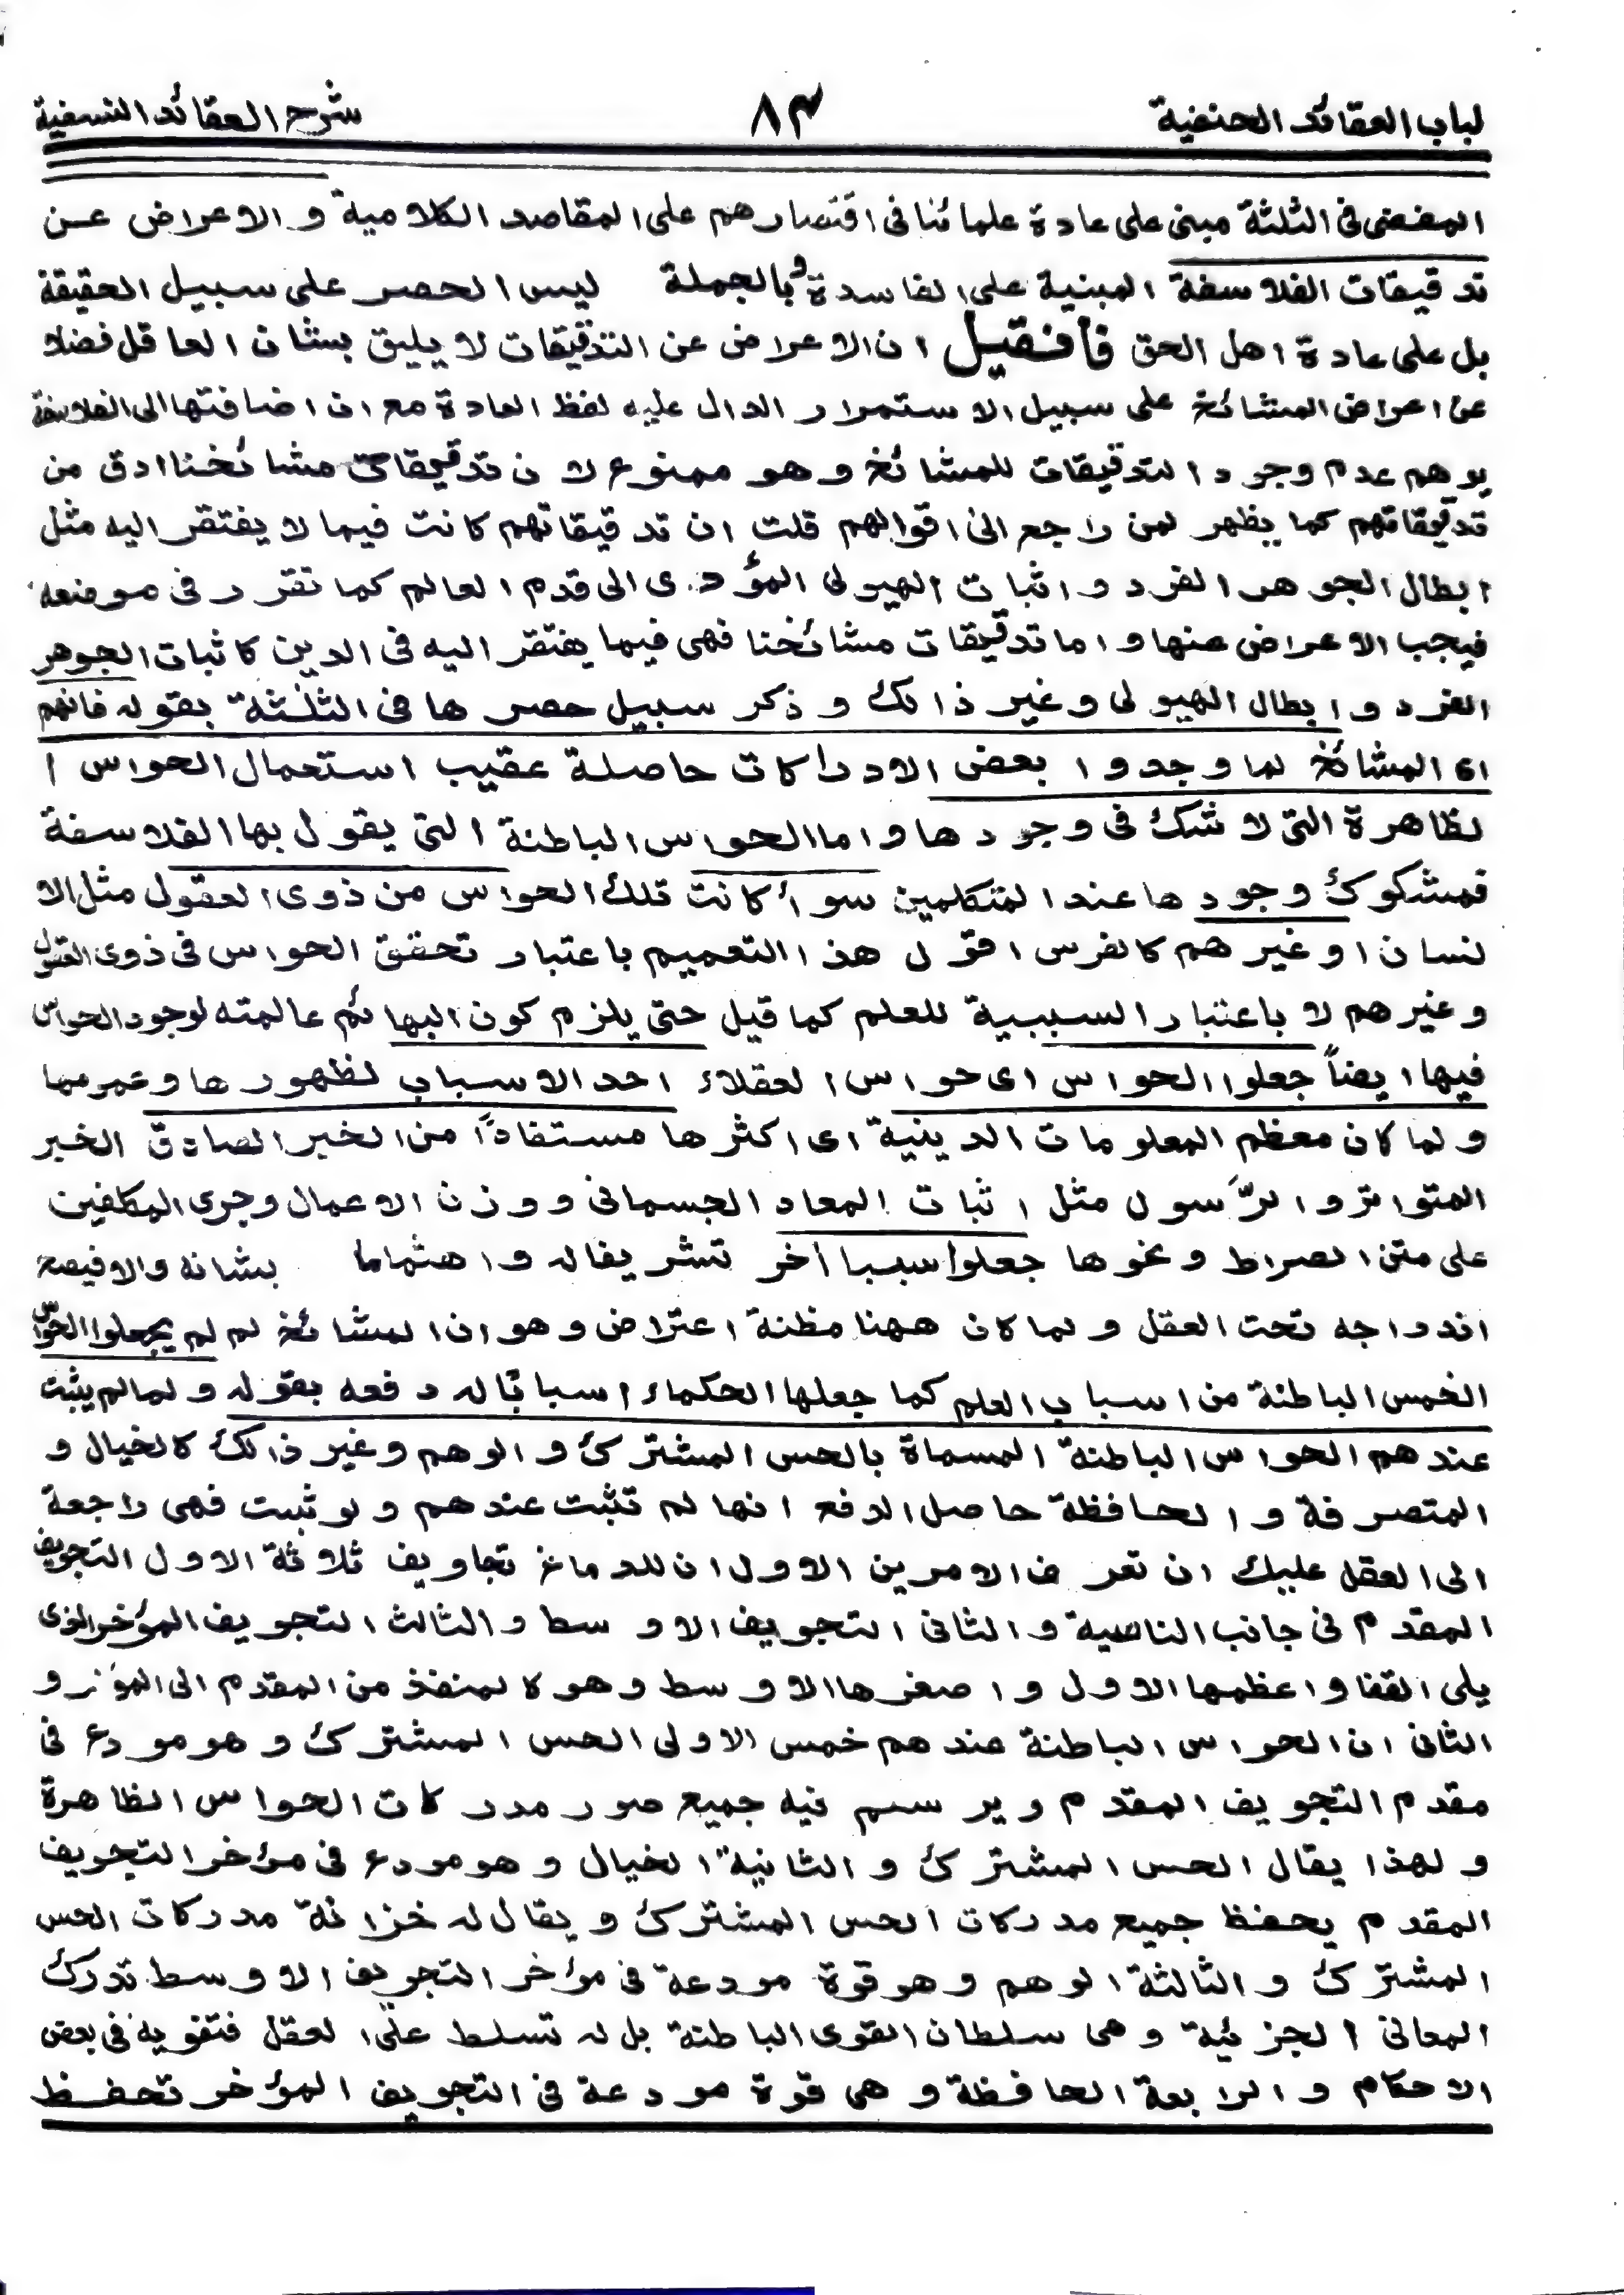 لباب العقائد الحنفية ٨٣ شرح العقائد النسفية
المفضى فى الثلثة مبنى على عادة علمائنا فى اقتصارهم على المقاصد الكلامية والاعراض عن
تدقيقات الفلاسفة المبنية على الفاسدة وبالجملة ليس الحصر على سبيل الحقيقة
بل على عادة اهل الحق فافقيل ان الاعراض عن التدقيقات لا يليق بشان العاقل فضلا
عن اعراض المشائخ على سبيل الاستمرار الدال عليه لفظ العادة مع ان اضافتها الى الفلاسفة
يوهم عدم وجود التدقيقات للمشائخ وهو ممنوع لان تدقيقات مشائخنا ادق من
تدقيقاتهم كما يظهر لمن راجع الى اقوالهم قلت ان تدقيقاتهم كانت فيما لا يفتقر اليه مثل
ابطال الجوهر الفرد واثبات الهيولى المؤدى الى قدم العالم كما تقرر فى موضعه
فيجب الاعراض عنها واما تدقيقات مشائخنا فهى فيما يفتقر اليه فى الدين كاثبات الجوهر
الفرد وابطال الهيولى وغير ذالك وذكر سبيل حصرها فى الثلثة بقوله فانهم
اى المشائخ لما وجدوا بعض الادراكات حاصلة عقيب استعمال الحواس ا
لظاهرة التى لا شك فى وجودها واما الحواس الباطنة التى يقول بها الفلاسفة
فمشكوك وجودها عند المتكلمين سوأ كانت تلك الحواس من ذوى العقول مثل الا
نسان او غيرهم كالفرس اقول هذا التعميم باعتبار تحقق الحواس فى ذوى العقول
وغيرهم لا باعتبار السببية للعلم كما قيل حتى يلزم كون البهائم عالمته لوجود الحواس
فيها ايضاً جعلوا الحواس اى حواس العقلاء احد الاسباب لظهورها وعمومها
ولما كان معظم المعلومات الدينية اى اكثرها مستفاداً من الخبر الصادق الخبر
المتواتر والرّسول مثل اثبات المعاد الجسمانى ووزن الاعمال وجرى المكلفين
على متن الصراط ونحوها جعلوا سببا أخر تشريفا له واهتماما بشانه والا فيصح
اندراجه تحت العقل ولما كان ههنا مظنة اعتراض وهو ان المشائخ لم لم يجعلوا الحواس
الخمس الباطنة من اسباب العلم كما جعلها الحكماء اسباباً له دفعه بقوله ولما لم يثبت
عندهم الحواس الباطنة المسماة بالحس المشترك والوهم وغير ذالك كالخيال و
المتصرفة والحافظة حاصل الدفع انها لم تثبت عندهم ولو ثبت فهى راجعة
الى العقل عليك ان تعرف الامرين الاول ان للدماغ تجاويف ثلاثة الاول التجويف
المقدم فى جانب الناصية والثانى التجويف الاوسط والثالث التجويف المؤخر الذى
يلى القفا واعظمها الاول واصغرها الاوسط وهو كالمنفذ من المقدم الى المؤخر و
الثانى ان الحواس الباطنة عندهم خمس الاولى الحس المشترك وهو مودع فى
مقدم التجويف المقدم ويرسم فيه جميع صور مدركات الحواس الظاهرة
ولهذا يقال الحس المشترك والثانية الخيال وهو مودع فى مؤخر التجويف
المقدم يحفظ جميع مدركات الحس المشترك ويقال له خزانة مدركات الحس
المشترك والثالثة الوهم وهو قوة مودعة فى مؤخر التجويف الاوسط تدرك
المعانى الجزئية وهى سلطان القوى الباطنة بل له تسلط على العقل فتغويه فى بعض
الاحكام والرابعة الحافظة وهى قوة مودعة فى التجويف المؤخر تحفظ